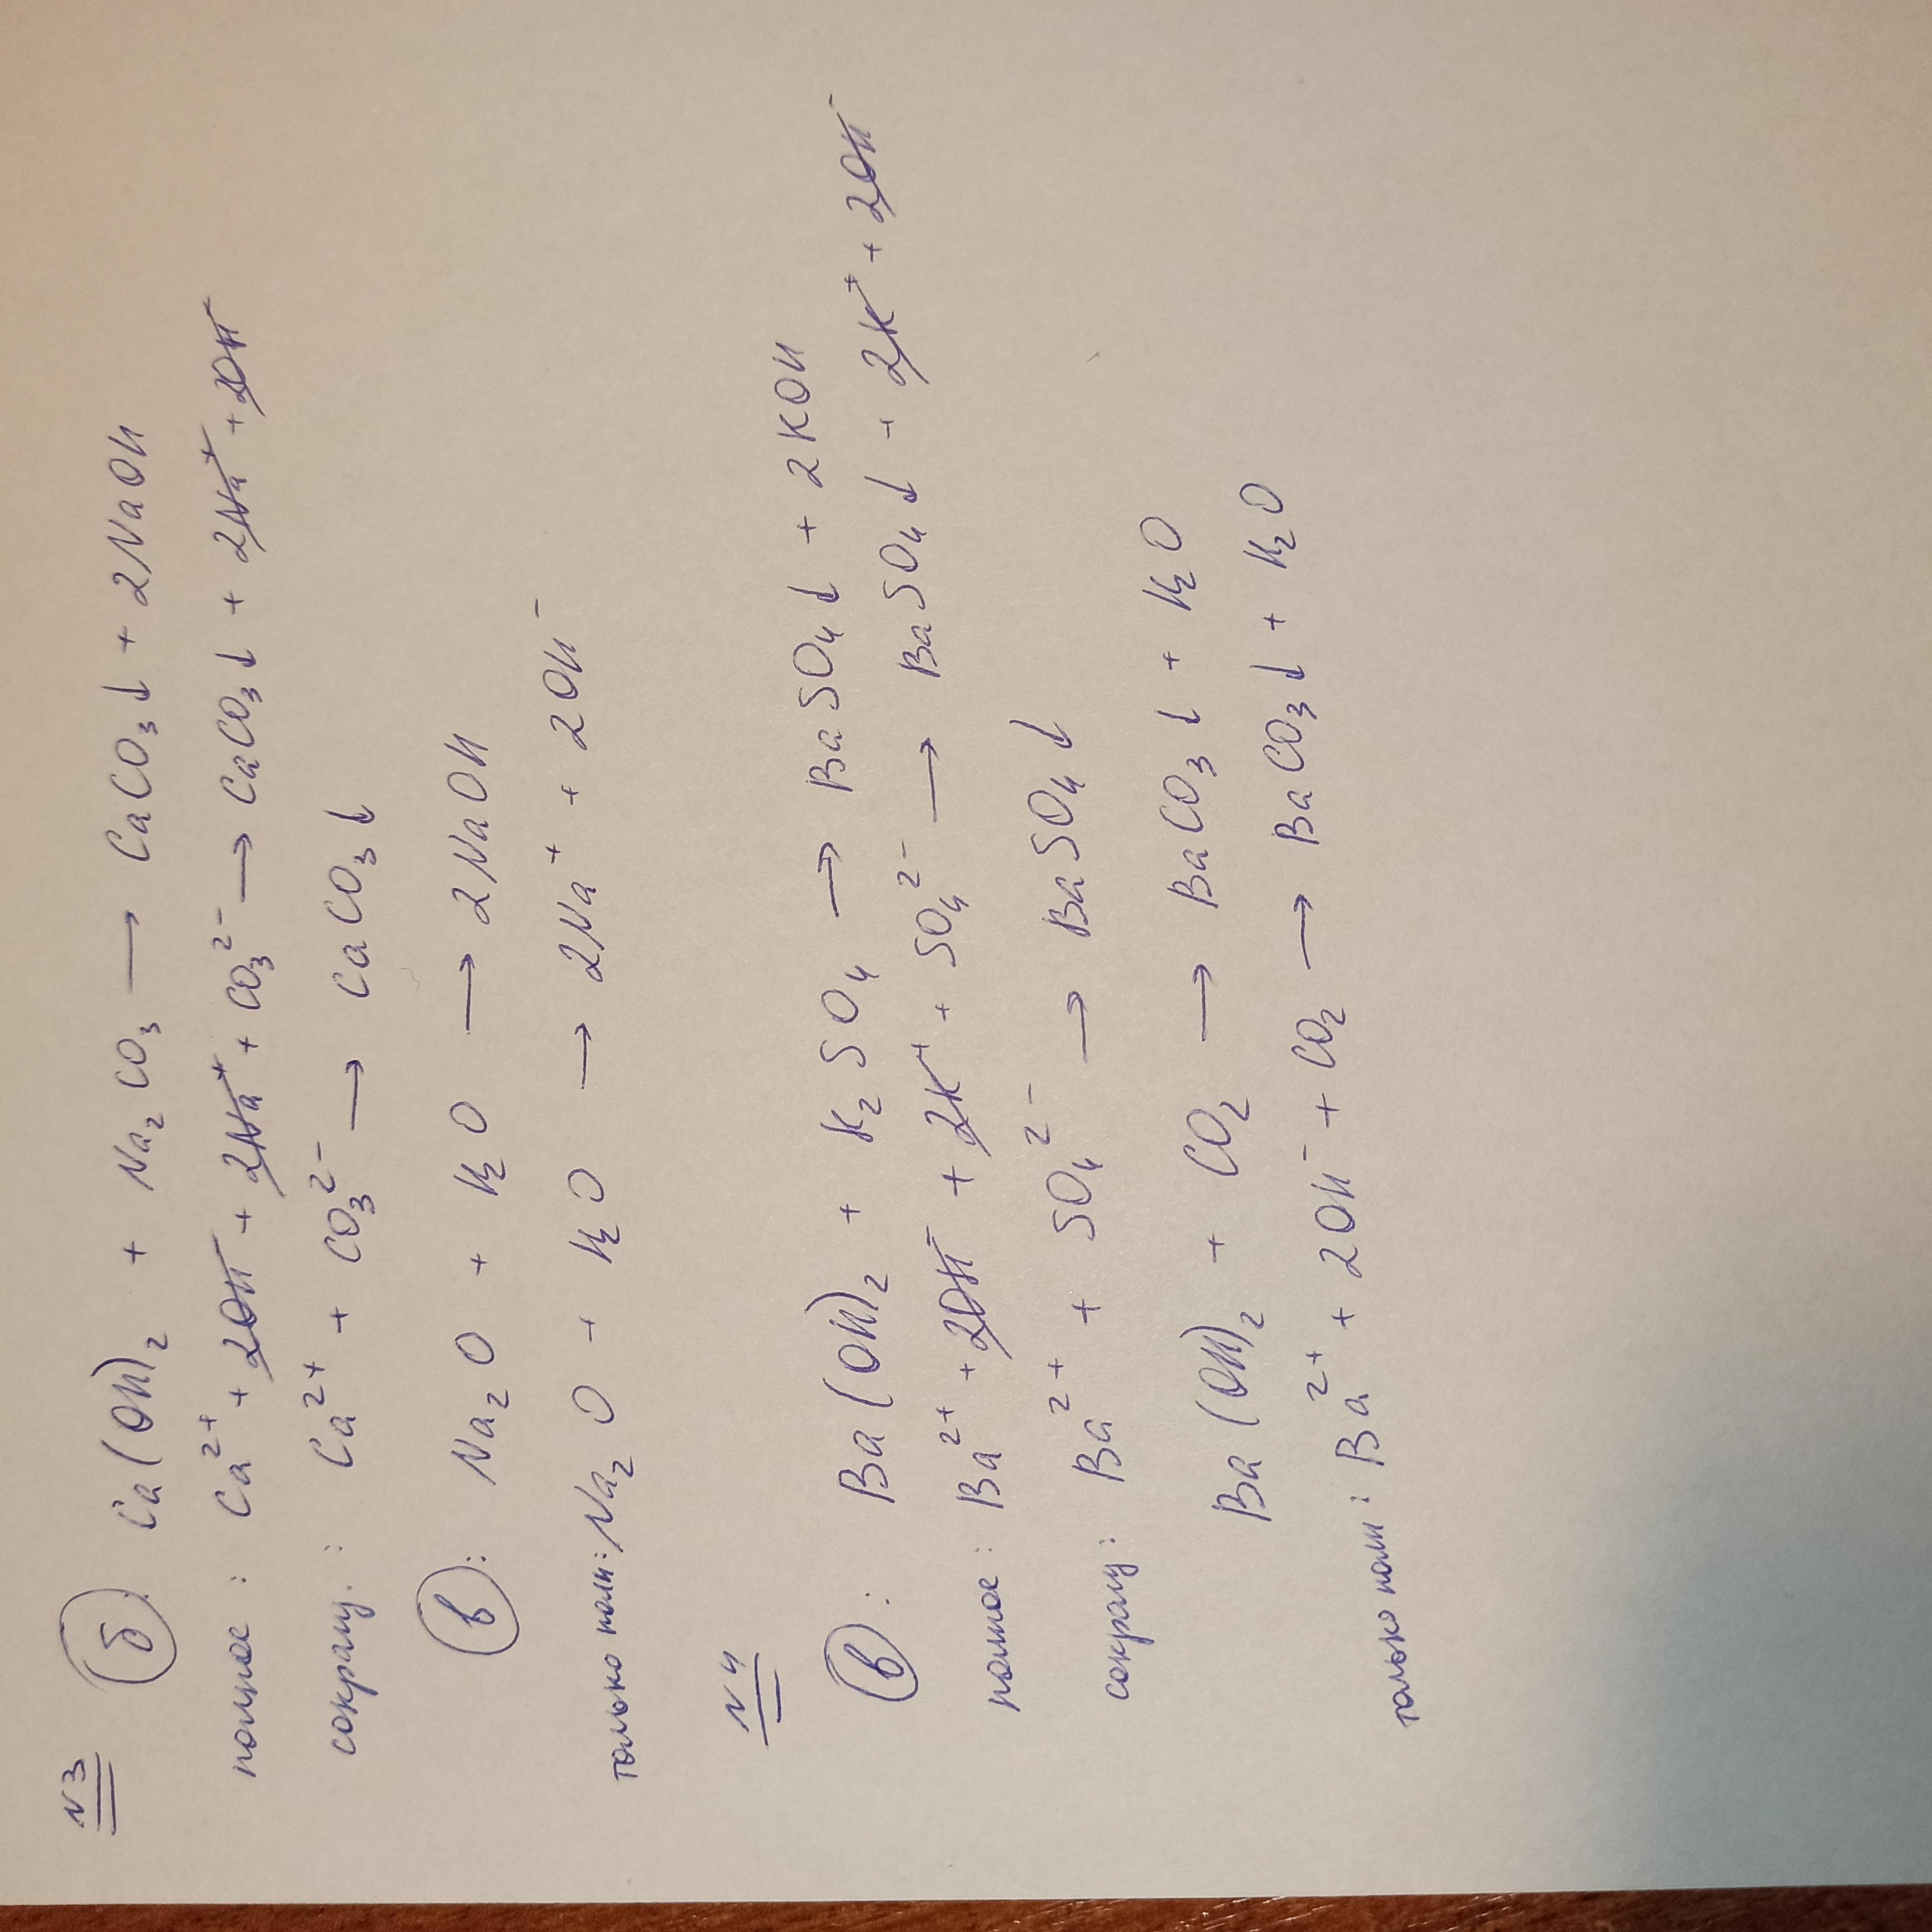 N3
б: Ca(OH)₂ + Na₂CO₃ → CaCO₃↓ + 2NaOH
полное: Ca²⁺ + 2OH⁻ + 2Na⁺ + CO₃²⁻ → CaCO₃↓ + 2Na⁺ + 2OH⁻
сокращ.: Ca²⁺ + CO₃²⁻ → CaCO₃↓
в: Na₂O + H₂O → 2NaOH
только полн: Na₂O + H₂O → 2Na⁺ + 2OH⁻
N4
в: Ba(OH)₂ + K₂SO₄ → BaSO₄↓ + 2KOH
полное: Ba²⁺ + 2OH⁻ + 2K⁺ + SO₄²⁻ → BaSO₄↓ + 2K⁺ + 2OH⁻
сокращ: Ba²⁺ + SO₄²⁻ → BaSO₄↓
Ba(OH)₂ + CO₂ → BaCO₃↓ + H₂O
только полн: Ba²⁺ + 2OH⁻ + CO₂ → BaCO₃↓ + H₂O